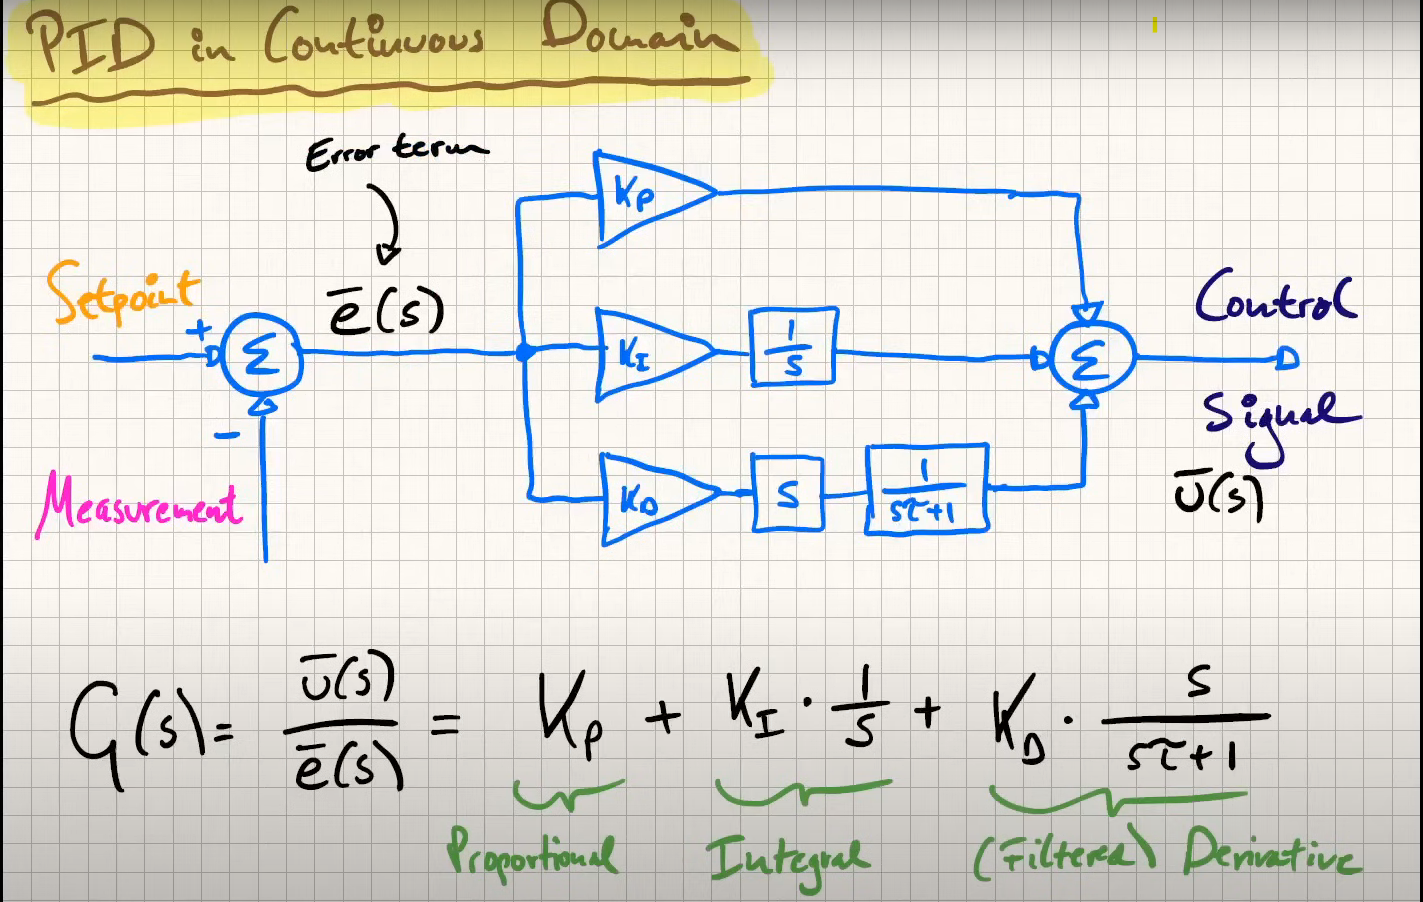 PID in Continuous Domain
Error term
Setpoint
+
Σ
-
Measurement
e̅(s)
K_P
K_I
1/s
K_D
s
1/(sτ+1)
Σ
Control
Signal
u̅(s)
G(s) = u̅(s)/e̅(s) = K_P + K_I · 1/s + K_D · s/(sτ+1)
Proportional Integral (Filtered) Derivative